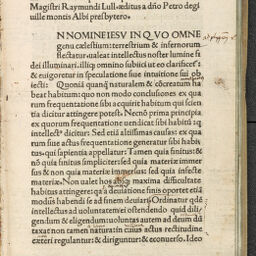 Magistri Raymundi Lull. æditus a dño Petro degi
uille montis Albi presbytero.
N NOMINE IESV IN QVO OMNE
genu cælestium: terrestrium & infernorum
flectatur. ualeat intellectus noster lumine fi
dei illuminari. illiq omnino subiici ut eo clarificet˜:
& euigoretur in speculatione siue intuitione sui ob
iecti: Quoniā quanq̃ naturalem & cōcreatam ha
beat habitum: quo non modo conclusiones ex qua
rum frequentatione sibi acquirit habitum qui scien
tia dicitur attingere potest. Necnō prima principia
ex quorum frequentatione uendicat sibi habitū: q
intellect⁹ dicitur. Sed etiā altissimas causas: ex qua
rum siue actus frequentatione generatur sibi habi
tus. qui sapientia appellatur: Tamen quia finitus: &
nō quia finitus simpliciter: sed quia materiæ immer
sus & non quia immersus: sed quia infecte
materiæ. Non ualet hos absq maxima difficultate
habitus attingere: q'a deuiatione finis oportet etiā
modūs habendi se ad finem deuiari: Ordinatur qde
intellectus ad uoluntatem: ei ostendendo quid dili
gendum & eligendum: uoluntas autem ad deum dū
taxat non tamen natura: in cuius actus rectitudine
exteri regulantur: & diriguntur: & econuerso. Ideo